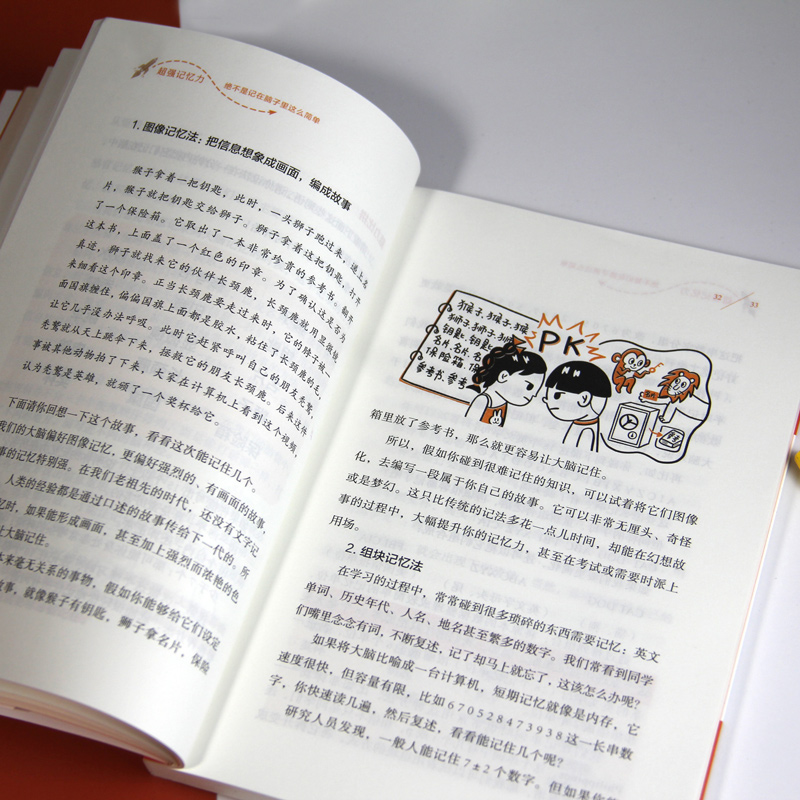 超强记忆力
绝不是记在脑子里这么简单
1. 图像记忆法：把信息想象成画面，编成故事
猴子拿着一把钥匙，此时，一头狮子跑过来，递上名
片，猴子就把钥匙交给狮子。狮子拿着这把钥匙，打开
了一个保险箱。它取出了一本非常珍贵的参考书。翻开
这本书，上面盖了一个红色的印章。为了确认这是否为
真迹，狮子就找来它的伙伴长颈鹿，长颈鹿就用
来细看这个印章。正当长颈鹿要走过来时，它的脖子被一
面国旗缠住，偏偏国旗上面都是胶水，粘住了长颈鹿的毛，
让它几乎没办法呼吸。此时它赶紧呼叫自己的朋友秃鹫，
秃鹫就从天上跳伞下来，拯救它的朋友长颈鹿。后来这件
事被其他动物拍了下来，大家在计算机上看到这个视频，
认为秃鹫是英雄，就颁了一个奖杯给它。
下面请你回想一下这个故事，看看这次能记住几个。
我们的大脑偏好图像记忆，更偏好强烈的、有画面的故事
事的记忆特别强。在我们老祖先的时代，还没有文字记
人类的经验都是通过口述的故事传给下一代的。所
忆时，如果能形成画面，甚至加上强烈而浓艳的色
让大脑记住。
本来毫无关系的事物，假如你能够给它们设定
故事，就像猴子有钥匙，狮子拿名片，保险
32
33
猴子.猴子.猴
狮子.狮子.狮
钥匙.钥匙
名片.名片
保险箱.保
参考书.参考
PK
名片
箱里放了参考书，那么就更容易让大脑记住。
所以，假如你碰到很难记住的知识，可以试着将它们图像
化，去编写一段属于你自己的故事。它可以非常无厘头、奇怪
或是梦幻。这只比传统的记法多花一点儿时间，却能在幻想故
事的过程中，大幅提升你的记忆力，甚至在考试或需要时派上
用场。
2. 组块记忆法
在学习的过程中，常常碰到很多琐碎的东西需要记忆：英文
单词、历史年代、人名、地名甚至繁多的数字。我们常看到同学
们嘴里念念有词，不断复述，记了却马上就忘了，这该怎么办呢？
如果将大脑比喻成一台计算机，短期记忆就像是内存，它
速度很快，但容量有限，比如 670528473938 这一长串数
字，你快速读几遍，然后复述，看看能记住几个呢？
研究人员发现，一般人能记住 7±2 个数字。但如果你